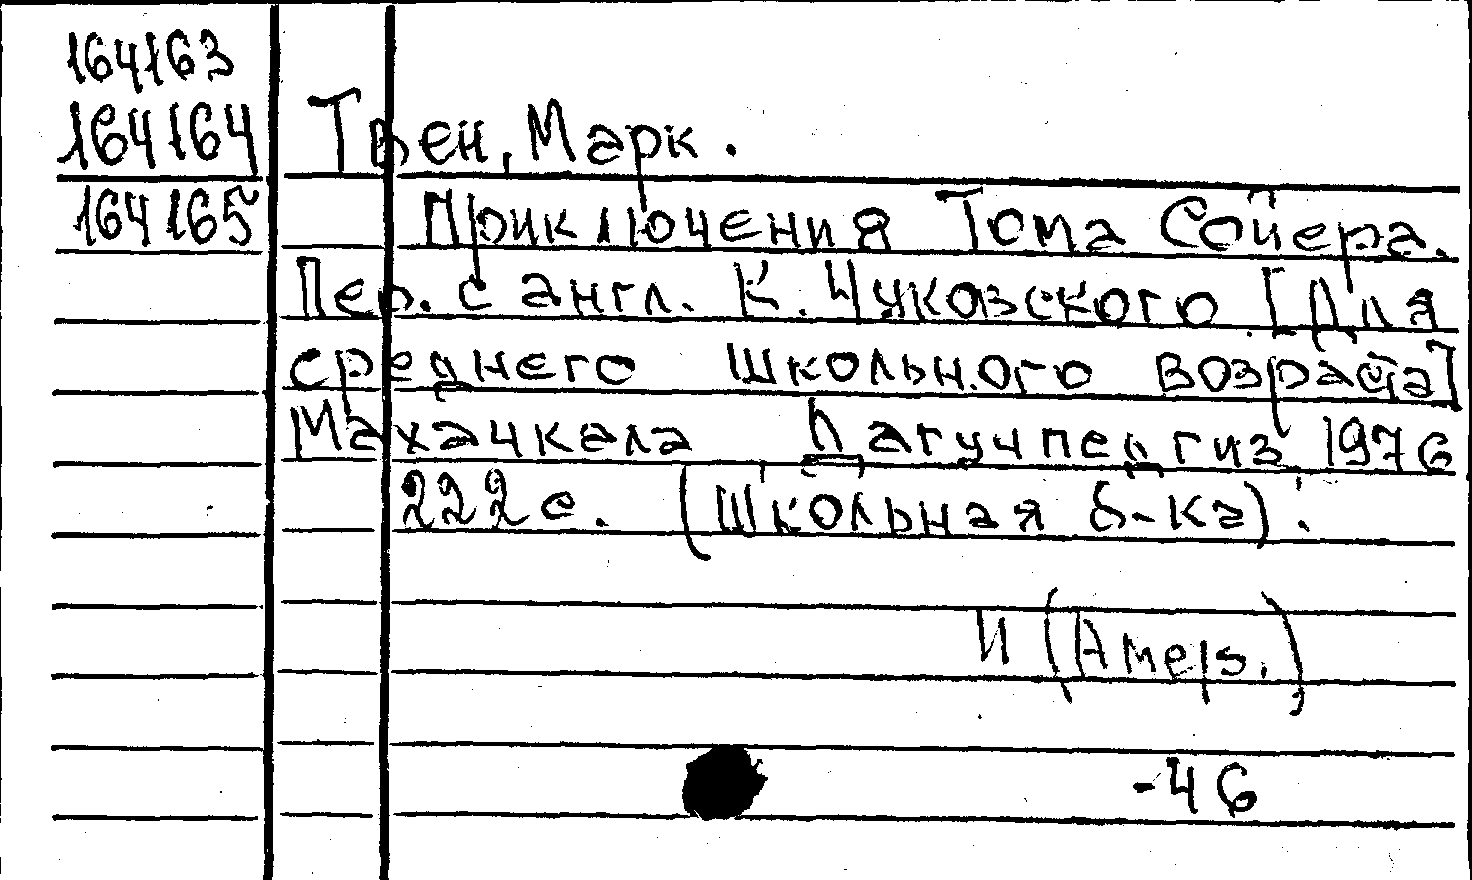 164163
164164 Твен, Марк.
164165 Приключения Тома Сойера.
Пер. с англ. К. Чуковского [Для
среднего школьного возраста]
Махачкала Дагучпедгиз 1976
222 с. (Школьная б-ка).
И (Амер.)
-46